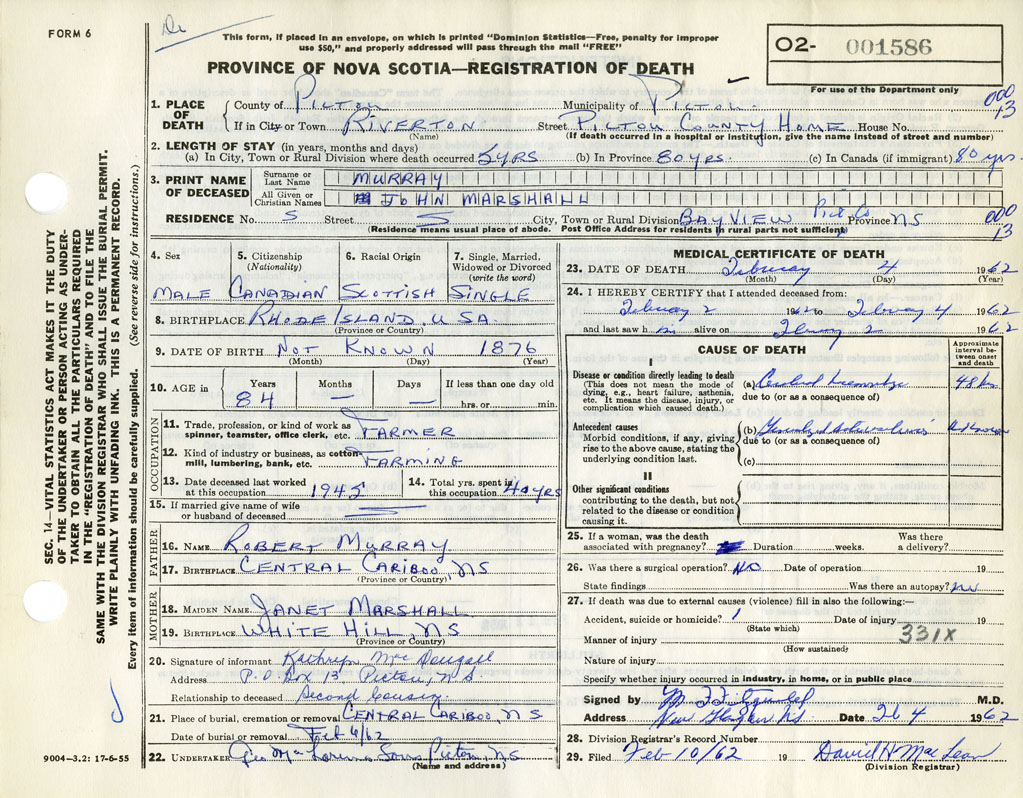 FORM 6
This form, if placed in an envelope, on which is printed "Dominion Statistics—Free, penalty for improper
use $50," and properly addressed will pass through the mail "FREE"
O2- 001586
PROVINCE OF NOVA SCOTIA—REGISTRATION OF DEATH
For use of the Department only
000
13
1. PLACE OF DEATH
County of PICTOU Municipality of PICTOU
If in City or Town RIVERTON Street PICTOU COUNTY HOME House No.
(Name) (If death occurred in a hospital or institution, give the name instead of street and number)
2. LENGTH OF STAY (in years, months and days)
(a) In City, Town or Rural Division where death occurred 5 YRS (b) In Province 80 yrs. (c) In Canada (if immigrant) 80 yrs.
3. PRINT NAME OF DECEASED
Surname or Last Name MURRAY
All Given or Christian Names JOHN MARSHALL
RESIDENCE No. S Street S City, Town or Rural Division BAYVIEW Pict Co Province NS
000
13
(Residence means usual place of abode. Post Office Address for residents in rural parts not sufficient)
4. Sex
MALE
5. Citizenship
(Nationality)
CANADIAN
6. Racial Origin
SCOTTISH
7. Single, Married, Widowed or Divorced
(write the word)
SINGLE
8. BIRTHPLACE RHODE ISLAND, U SA.
(Province or Country)
9. DATE OF BIRTH NOT KNOWN 1876
(Month) (Day) (Year)
10. AGE in Years Months Days If less than one day old
84 — — hrs. or min.
OCCUPATION
11. Trade, profession, or kind of work as
spinner, teamster, office clerk, etc. FARMER
12. Kind of industry or business, as cotton
mill, lumbering, bank, etc. FARMING
13. Date deceased last worked
at this occupation 1945
14. Total yrs. spent in
this occupation 40 yrs
15. If married give name of wife
or husband of deceased
FATHER
16. NAME ROBERT MURRAY
17. BIRTHPLACE CENTRAL CARIBOO, NS
(Province or Country)
MOTHER
18. MAIDEN NAME JANET MARSHALL
19. BIRTHPLACE WHITE HILL, NS
(Province or Country)
20. Signature of informant Kathryn MacDougall
Address P.O. Box 13 Pictou, N S
Relationship to deceased Second Cousin.
21. Place of burial, cremation or removal CENTRAL CARIBOO, NS
Date of burial or removal Feb 6/62
22. UNDERTAKER Sons Pictou, NS
(Name and address)
9004—3.2: 17-6-55
MEDICAL CERTIFICATE OF DEATH
23. DATE OF DEATH February 4 1962
(Month) (Day) (Year)
24. I HEREBY CERTIFY that I attended deceased from:
February 2 1962 to February 4 1962
and last saw him alive on February 2 1962
CAUSE OF DEATH
Approximate interval between onset and death
I
Disease or condition directly leading to death
(This does not mean the mode of
dying, e.g., heart failure, asthenia,
etc. It means the disease, injury, or
complication which caused death.)
(a) Cerebral hemorrhage 48 hrs
due to (or as a consequence of)
Antecedent causes
Morbid conditions, if any, giving
rise to the above cause, stating the
underlying condition last.
(b) Generalized arteriosclerosis not known
due to (or as a consequence of)
(c)
II
Other significant conditions
contributing to the death, but not
related to the disease or condition
causing it.
25. If a woman, was the death
associated with pregnancy? Duration weeks. Was there
a delivery?
26. Was there a surgical operation? NO Date of operation 19
State findings Was there an autopsy? no
27. If death was due to external causes (violence) fill in also the following:—
Accident, suicide or homicide? Date of injury 19
(State which)
331X
Manner of injury
(How sustained)
Nature of injury
Specify whether injury occurred in industry, in home, or in public place
Signed by M.D.
Address New Glasgow NS Date 1962
28. Division Registrar's Record Number
29. Filed Feb 10/62 19 David H MacLean
(Division Registrar)
SEC. 14—VITAL STATISTICS ACT MAKES IT THE DUTY
OF THE UNDERTAKER OR PERSON ACTING AS UNDER-
TAKER TO OBTAIN ALL THE PARTICULARS REQUIRED
IN THE "REGISTRATION OF DEATH" AND TO FILE THE
SAME WITH THE DIVISION REGISTRAR WHO SHALL ISSUE THE BURIAL PERMIT.
WRITE PLAINLY WITH UNFADING INK. THIS IS A PERMANENT RECORD.
Every item of information should be carefully supplied. (See reverse side for instructions.)